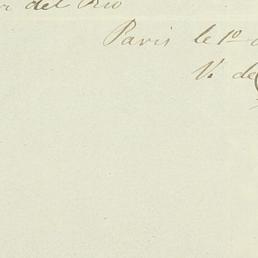 del Rio
Paris le 1º
V. de